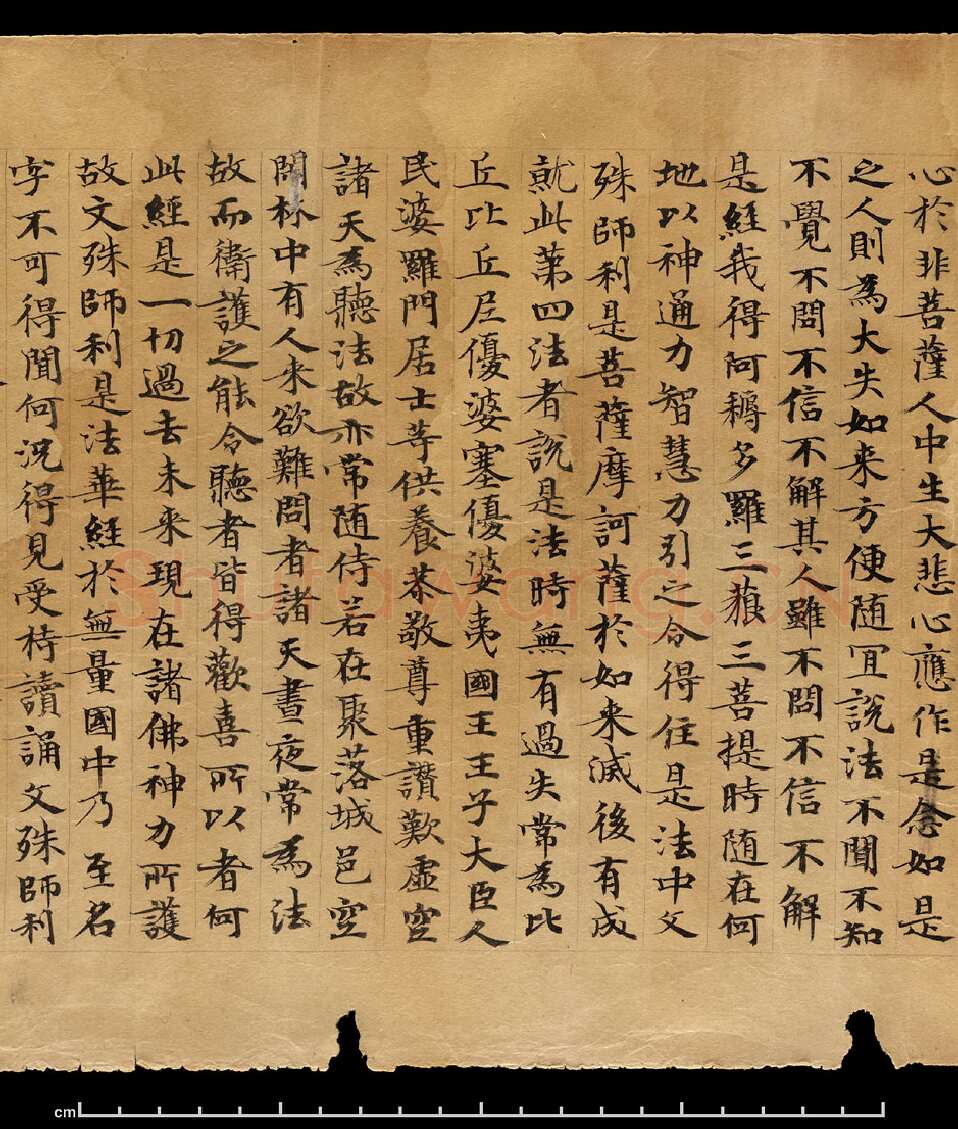 心於非菩薩人中生大悲心應作是念如是
之人則為大失如来方便随冝說法不聞不知
不覺不問不信不解其人雖不問不信不解
是經我得阿耨多羅三藐三菩提時随在何
地以神通力智慧力引之令得住是法中文
殊師利是菩薩摩訶薩於如来滅後有成
就此第四法者說是法時無有過失常為比
丘比丘尼優婆塞優婆夷國王王子大臣人
民婆羅門居士等供養恭敬尊重讚歎虛空
諸天為聽法故亦常随侍若在聚落城邑空
閑林中有人来欲難問者諸天晝夜常為法
故而衛護之能令聽者皆得歡喜所以者何
此經是一切過去未来現在諸佛神力所護
故文殊師利是法華經於無量國中乃至名
字不可得聞何況得見受持讀誦文殊師利
Shufawang.CN
cm